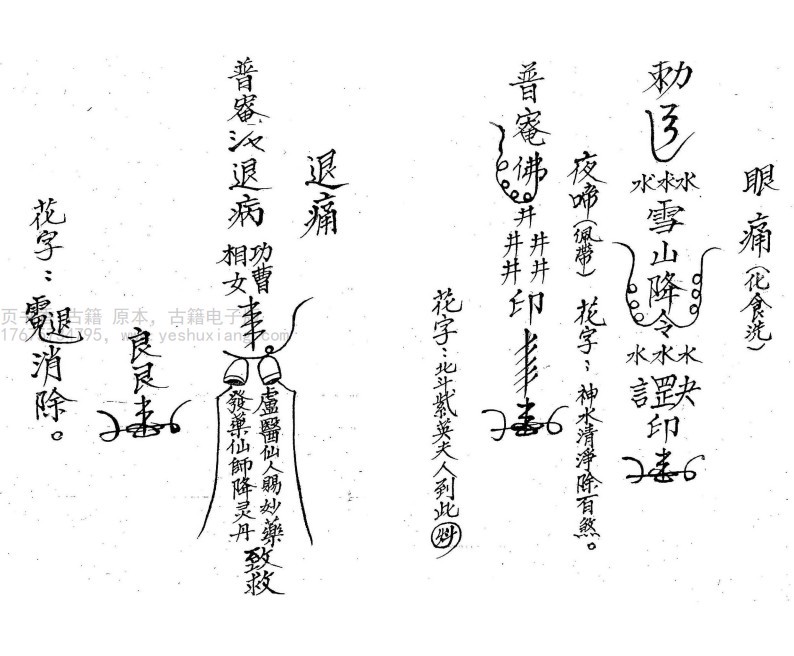 眼痛(化食洗)
勅
水水水
雪山降令
水水水
罡
印
花字:神水清淨除百煞。
夜啼(佩帶)
普庵佛
井
井井
井井
印
花字:北斗紫英夫人到此
退痛
普庵
退病
功曹
相女
盧醫仙人賜妙藥
發藥仙師降灵丹
致救
良艮
花字:
退消除。
古籍 原本, 古籍电子
yeshuxiang.com